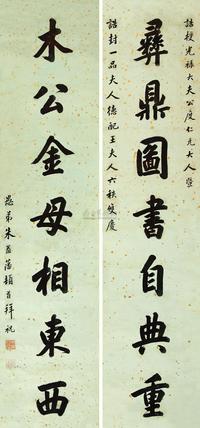 誥授光祿大夫公度仁兄大人暨
誥封一品夫人德配王夫人六秩雙慶
彝鼎圖書自典重
木公金母相東西
愚弟朱益藩頓首拜祝